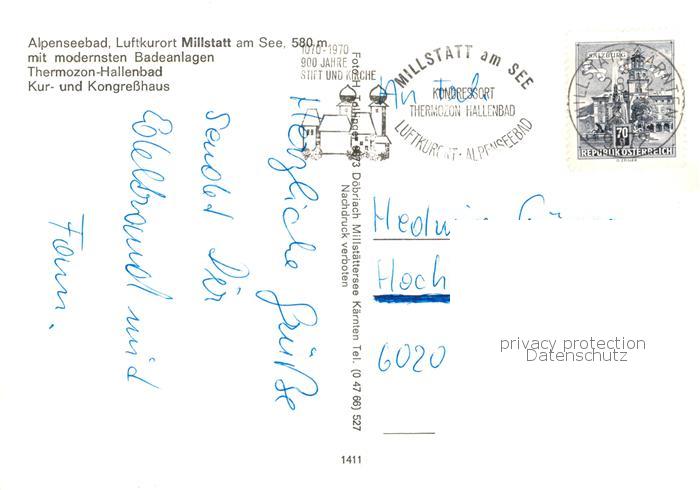 Alpenseebad, Luftkurort Millstatt am See, 580 m
mit modernsten Badeanlagen
Thermozon-Hallenbad
Kur- und Kongreßhaus
1070-1970
900 JAHRE
STIFT UND KIRCHE
MILLSTATT am SEE
KONGRESSORT
THERMOZON HALLENBAD
LUFTKURORT - ALPENSEEBAD
SALZBURG
70
REPUBLIK ÖSTERREICH
Herzliche Grüße
sendet Dir
und
Fam.
Döbriach Millstättersee Kärnten Tel. (0 47 66) 527
Nachdruck verboten
An
Hoch
6020
privacy protection
Datenschutz
1411